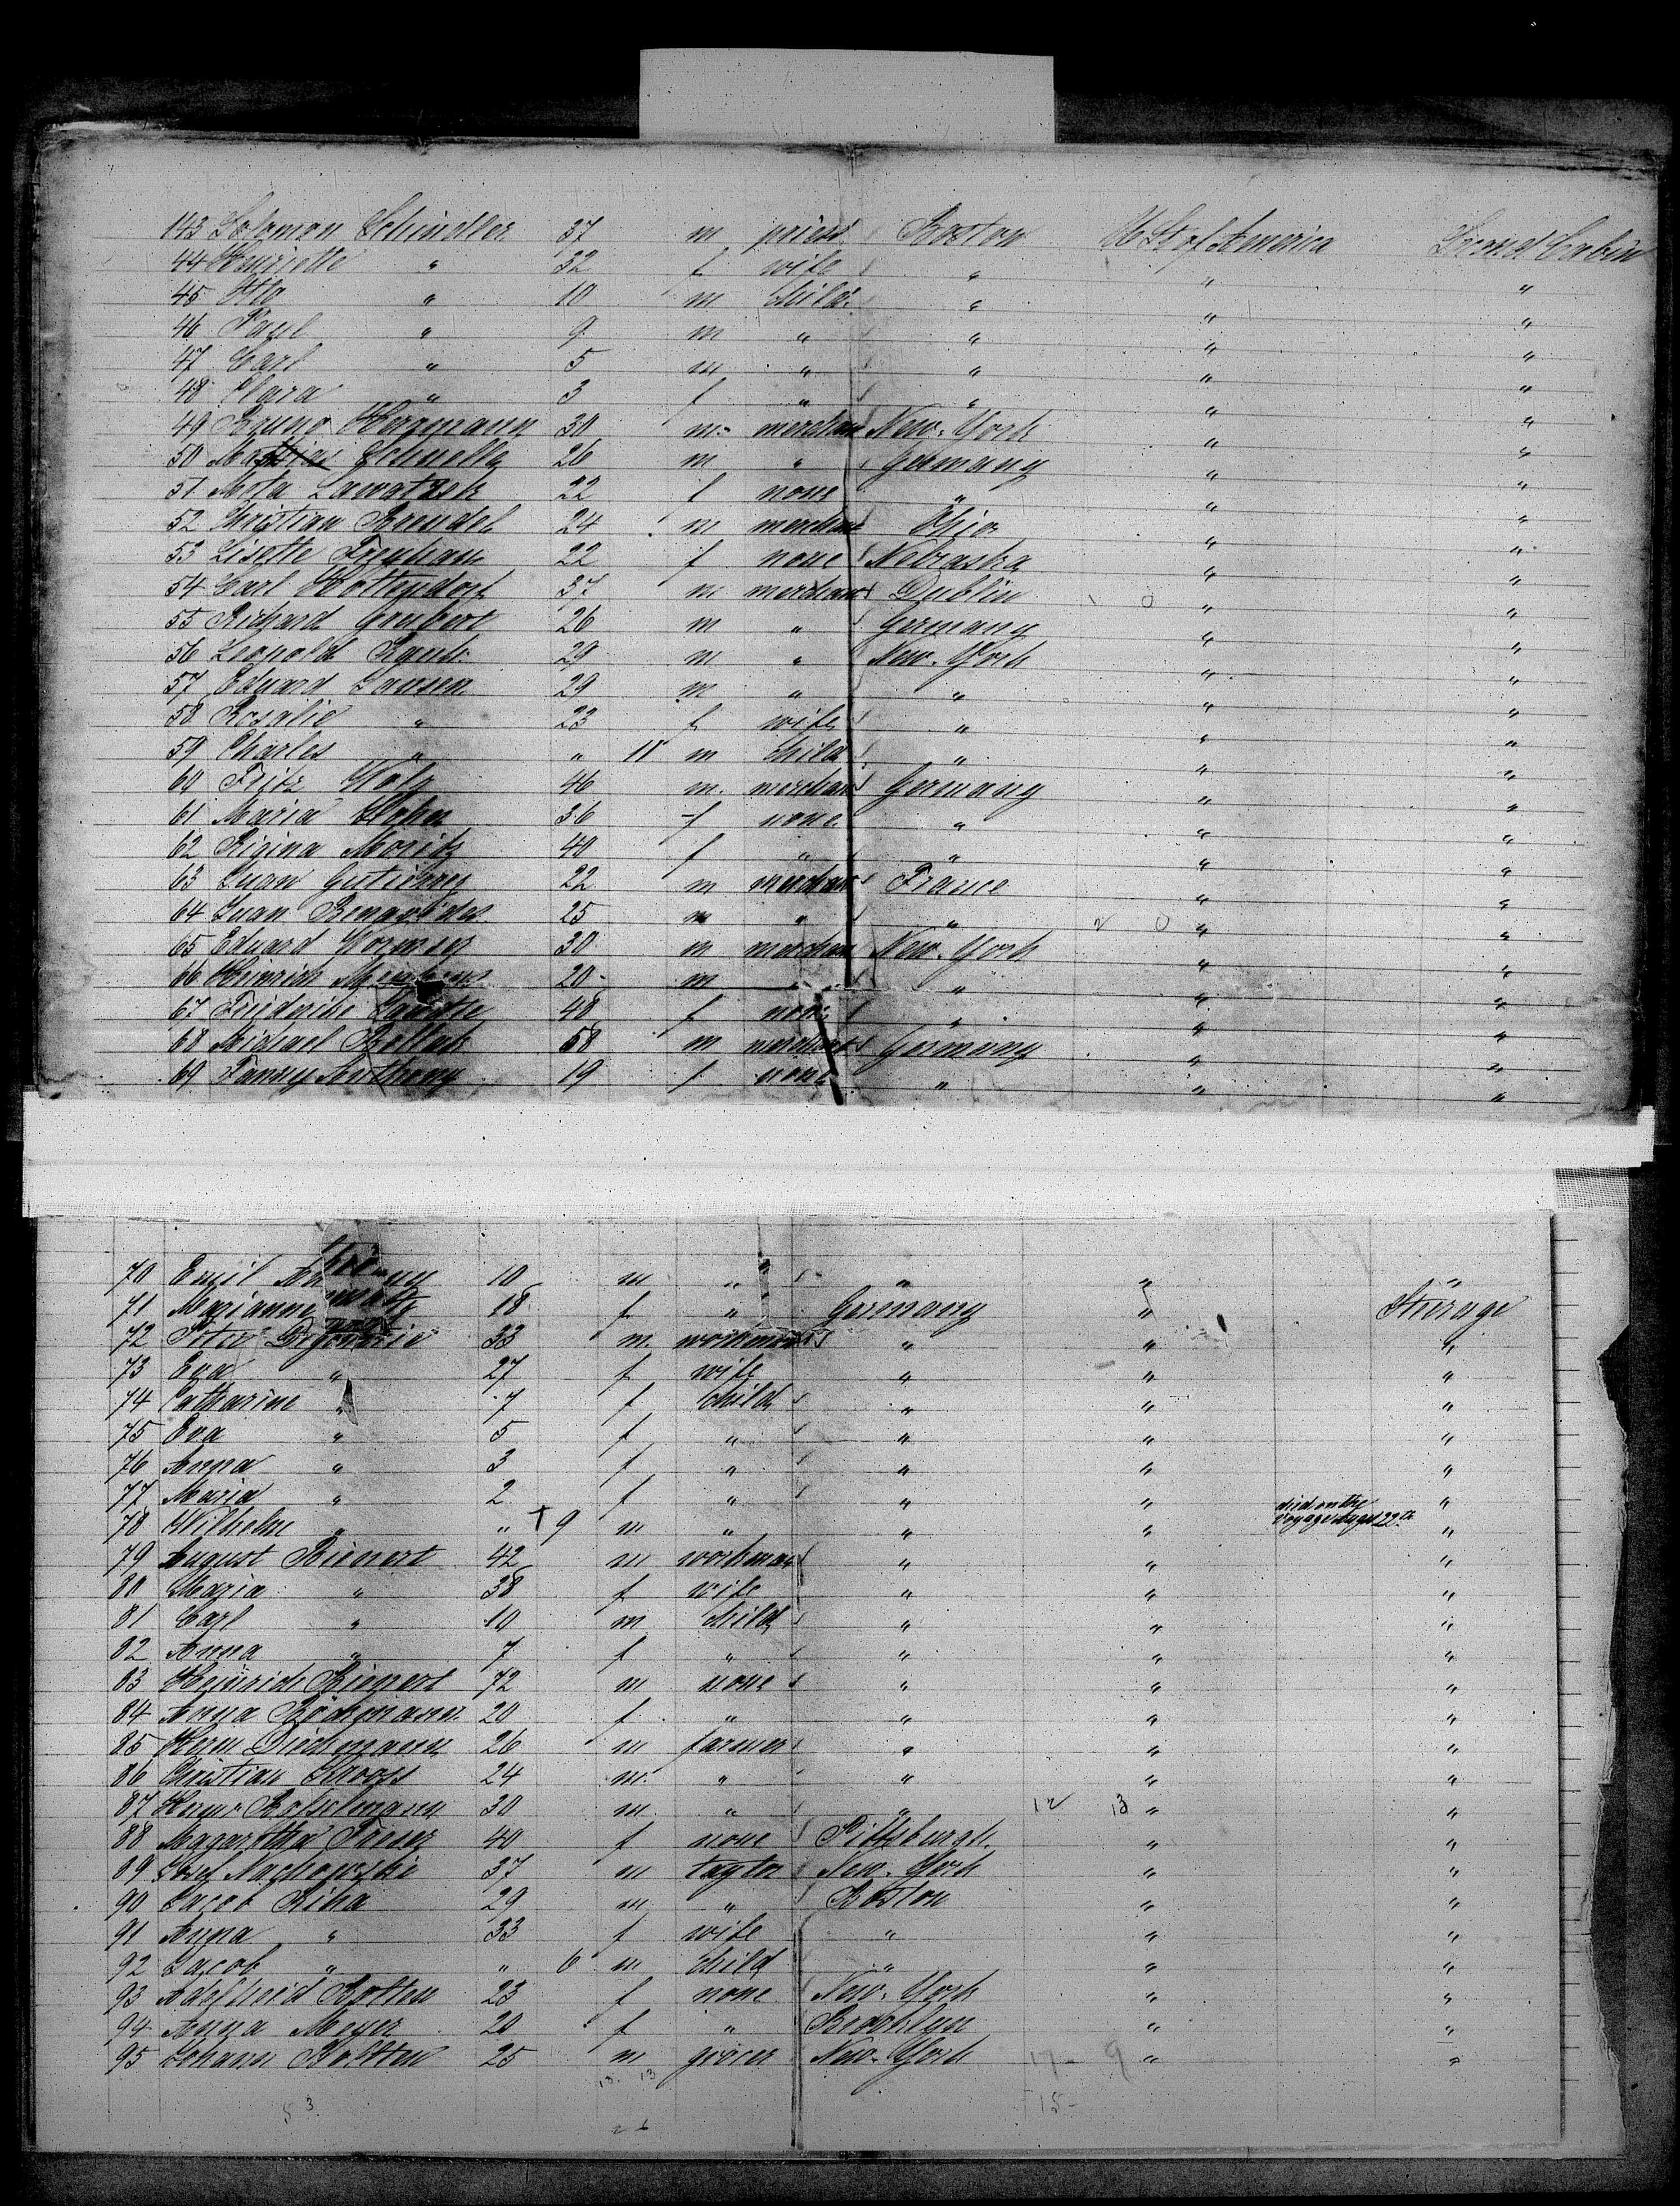 143 Solomon Schindler 37 m priest Boston U St of America Second Cabin
44 Henriette " 32 f wife " " "
45 Otto " 10 m child " " "
46 Paul " 9 m " " " "
47 Carl " 5 m " " " "
48 Clara " 3 f " " " "
49 Bruno Herrmann 30 m merchant New-York " "
50 Schnelle 26 m " Germany " "
51 22 f none " " "
52 Christian Brendel 24 m merchant Ohio " "
53 Lisette 22 f none Nebraska " "
54 Carl Kottendorf 37 m merchant Dublin " "
55 Richard Graubert 26 m " Germany " "
56 Leopold 29 m " New-York " "
57 Eduard Jansen 29 m " " " "
58 Rosalie " 23 f wife " " "
59 Charles " " 11 m child " " "
60 Fritz 46 m merchant Germany " "
61 Maria 36 f none " " "
62 Rigina Moritz 40 f " " " "
63 Juan Gutierrez 22 m merchant France " "
64 Juan Benavides 25 m " " 2 0 " "
65 Eduard Wormser 30 m merchant New-York " "
66 Heinrich 20 m " " " "
67 Friedricke 48 f none " " "
68 Michael Pollack 58 m merchant Germany " "
69 Fanny Anthony 19 f none " " "
70 Emil 10 m " " " "
71 Marianne 18 f " Germany " Steerage
72 Peter 33 m workman " " "
73 Eva " 27 f wife " " "
74 Catharine " 7 f child " " "
75 Eva " 5 f " " " "
76 Anna " 3 f " " " "
77 Maria " 2 f " " " "
78 Wilhelm " " † 9 m " " " died on the voyage August 22th "
79 August Bienert 42 m workman " " "
80 Maria " 38 f wife " " "
81 Carl " 10 m child " " "
82 Anna " 7 f " " " "
83 Heinrich Bienert 72 m none " " "
84 Anna Bödemann 20 f " " " "
85 Herm Dieckmann 26 m farmer " " "
86 Christian Kross 24 m " " " "
87 Bosselmann 30 m " " 12 13 " "
88 Magaretha Freser 40 f none Pittsburgh " "
89 Josef 37 m taylor New-York " "
90 Jacob Riha 29 m " Boston " "
91 Anna " 33 f wife " " "
92 Jacob " " 6 m child " " "
93 Adelheid Botten 23 f none New-York " "
94 Anna Meyer 20 f " Brooklyn " "
95 Johann Boltten 25 m grocer New-York 17 - 9 " "
13 13
53 15-
26